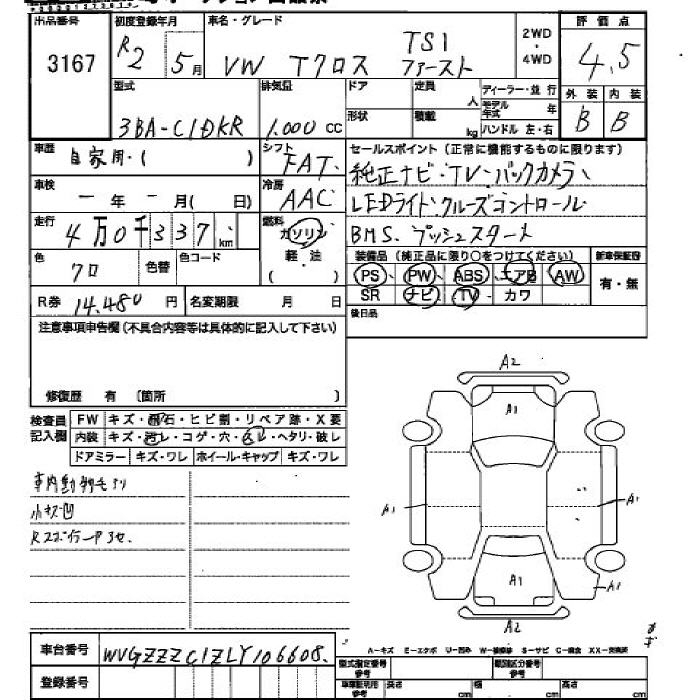 出品番号
3167
初度登録年月
R2 5月
車名・グレード
VW Tクロス TSI ファースト
2WD
・
4WD
評価点
4.5
型式
3BA-C1DKR
排気量
1.000 cc
ドア
定員
人
形状
積載
kg
ディーラー・並行
モデル年式 年
ハンドル 左・右
外装
内装
B B
車歴
自家用・( )
シフト
FAT
セールスポイント (正常に機能するものに限ります)
純正ナビ・TV・バックカメラ
LEDライト クルーズコントロール
BMS. プッシュスタート
車検
ー年ー月( 日)
冷房
AAC
走行
4万0千337 km
燃料
ガソリン
軽・油
( )
色
クロ
色替
色コード
装備品 (純正品に限り○をつけてください)
PS PW ABS エアB AW
SR ナビ TV カワ
新車保証書
有・無
R券 14.480 円
名変期限 月 日
後日品
注意事項申告欄 (不具合内容等は具体的に記入して下さい)
修復歴 有 〔箇所 〕
検査員
記入欄
FW キズ・飛石・ヒビ割・リペア跡・X要
内装 キズ・汚レ・コゲ・穴・スレ・ヘタリ・破レ
ドアミラー キズ・ワレ ホイール・キャップ キズ・ワレ
車内動物毛アリ
小キズ凹
A2
A1
A1
A1
A1
A1
A2
A-キズ E-エクボ U-凹み W-補修跡 S-サビ C-腐食 XX-交換済
車台番号
WVGZZZC1ZLY106608
登録番号
型式指定番号
参考
類別区分番号
参考
車庫証明用
参考
長さ cm
幅 cm
高さ cm